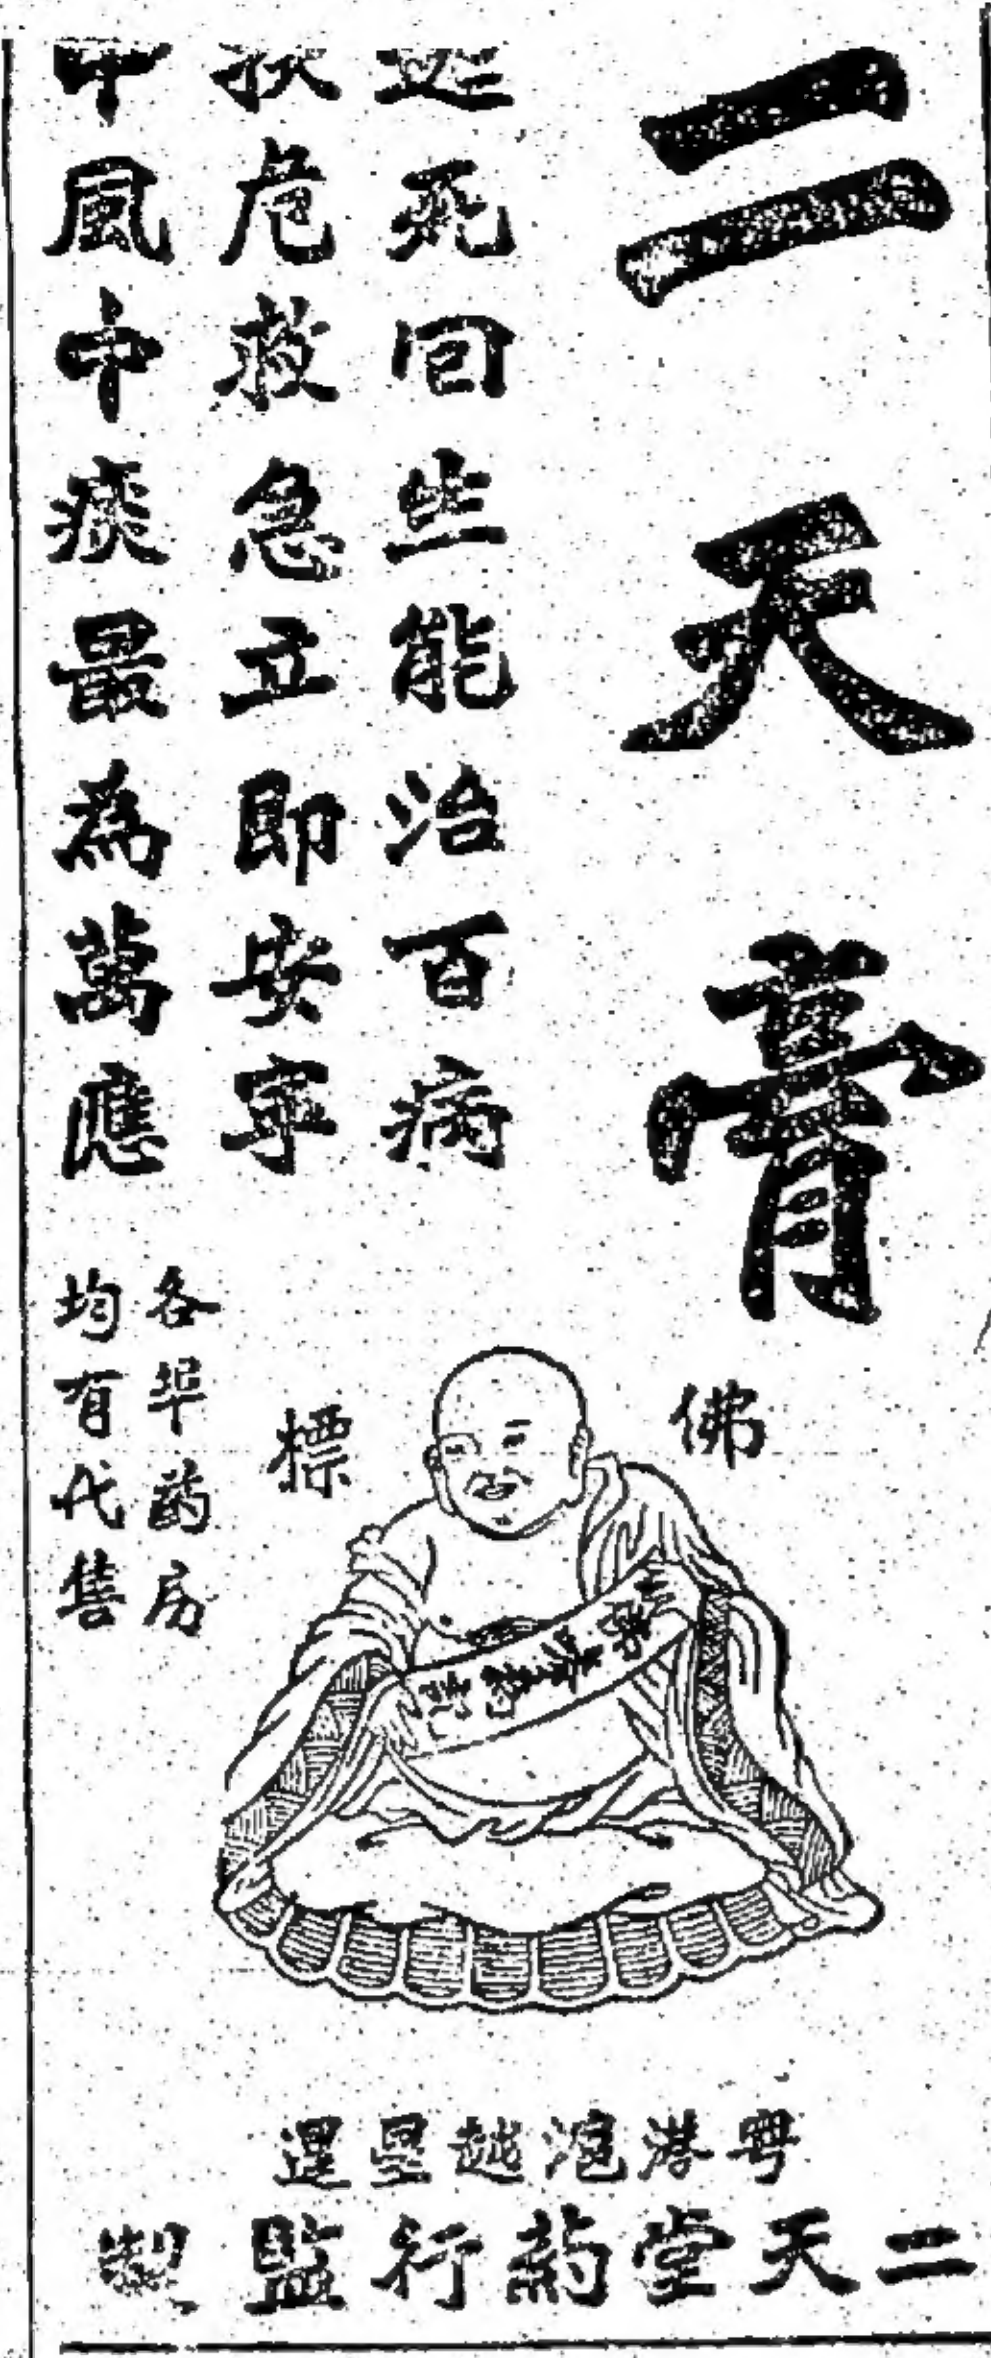 二天膏
起死回生能治百病
扶危救急立即安寧
中風中痰最為萬應
各埠药房
均有代售
佛標
粵港滬越星暹
二天堂药行監製